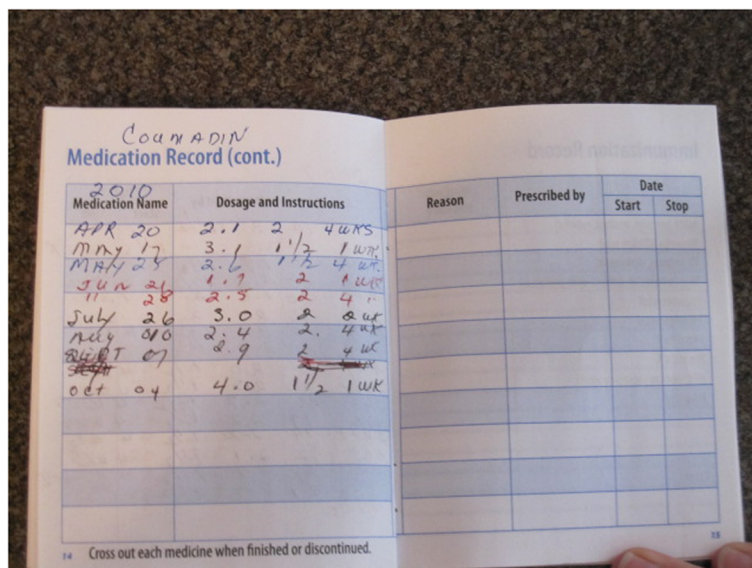 COUMADIN
Medication Record (cont.)
2010
Medication Name Dosage and Instructions
APR 20 2.1 2 4 WKS
MAY 17 3.1 1 1/2 1 WK.
MAY 25 2.6 1 1/2 4 WK.
JUN 21 1.7 2 1 WK
" 28 2.5 2 4 "
July 26 3.0 2 2 WK
Aug 2.4 2. 4 WK
SEPT 07 2.9 2 4 WK
Oct 04 4.0 1 1/2 1 WK
14 Cross out each medicine when finished or discontinued.
Reason Prescribed by Date
Start Stop
15
Immunization Record